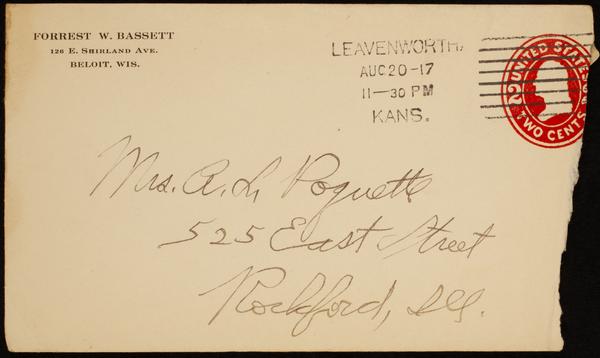 FORREST W. BASSETT
126 E. SHIRLAND AVE.
BELOIT, WIS.
LEAVENWORTH,
AUG 20-17
11-30 PM
KANS.
UNITED STATES
2
TWO CENTS
Mrs. A. L. Poquette
525 East Street
Rockford, Ill.